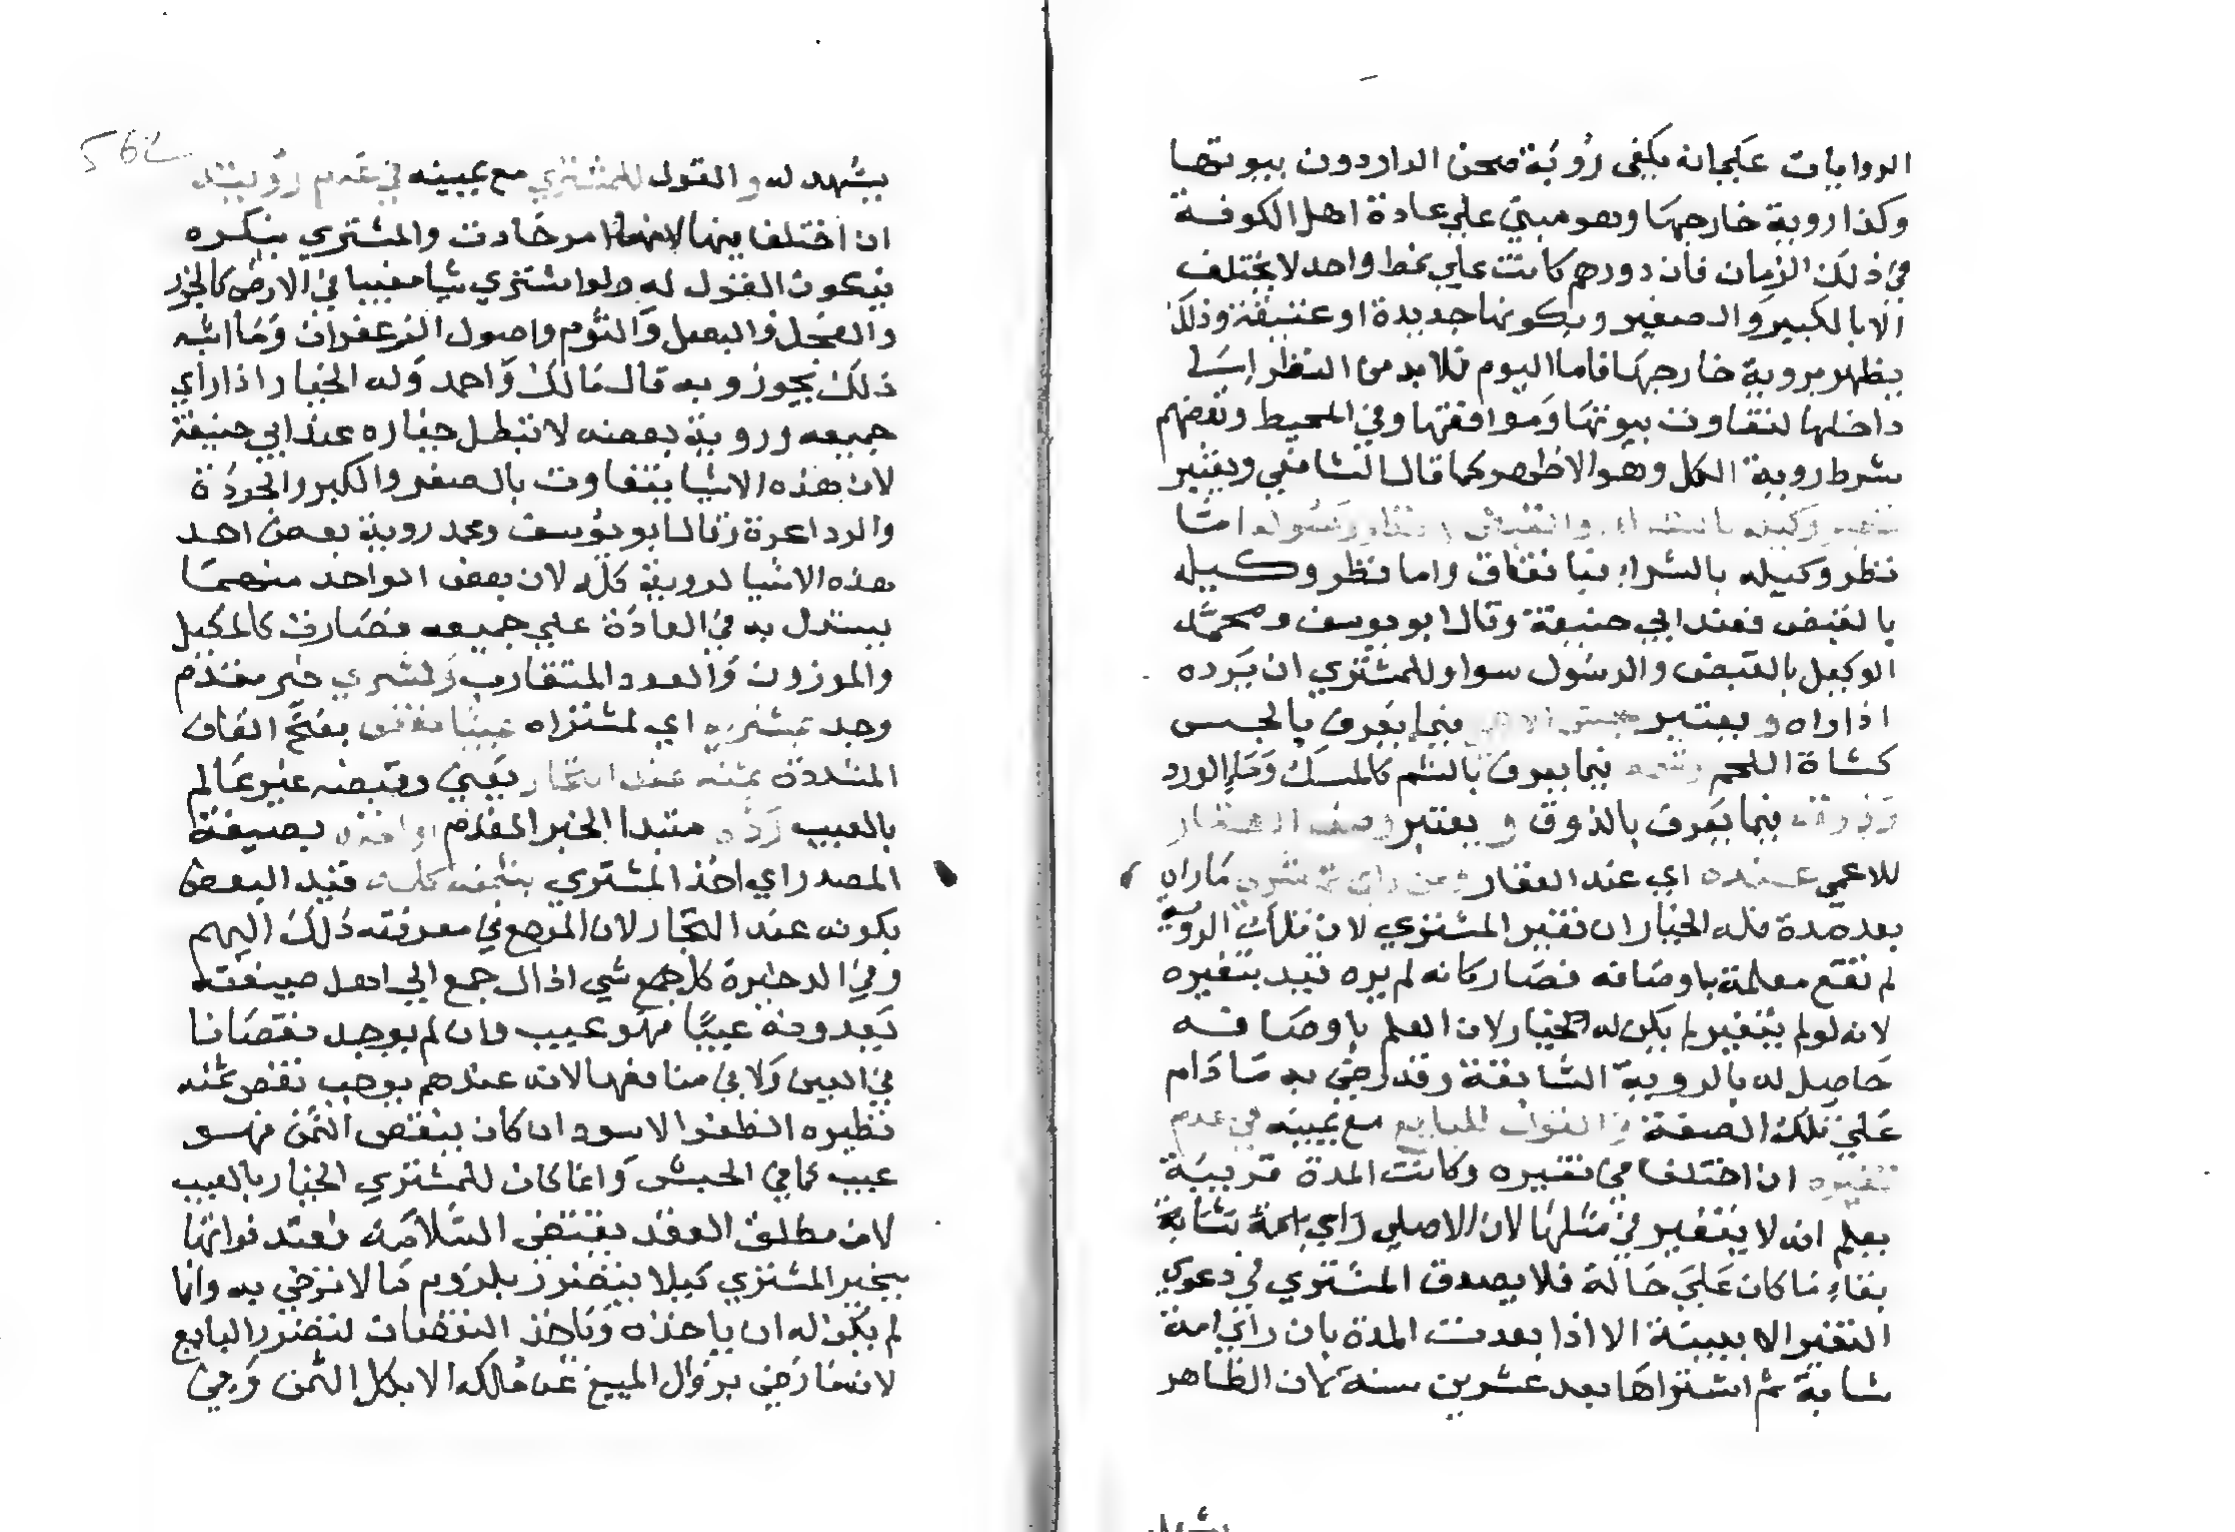 الروايات علي انه يكفي رؤية صحن الدار دون بيوتها
وكذا روية خارجها وهو مبني علي عادة اهل الكوفة
في ذلك الزمان فان دورهم كانت علي نمط واحد لا يختلف
الا بالكبير والصغير وبكونها جديدة او عتيقة وذلك
يظهر بروية خارجها فاما اليوم فلا بد من النظر الي
داخلها لتفاوت بيوتها ومرافقها وفي المحيط وبعضهم
شرط روية الكل وهو الاظهر كما قال الشافعي ويعتبر
نظر وكيله بالشراء والقبض لا نظر رسوله اما
نظر وكيله بالشراء فباتفاق واما نظر وكيله
بالقبض فعند ابي حنيفة وقال ابو يوسف ومحمد
الوكيل بالقبض والرسول سوا وللمشتري ان يرده
اذا راه ويعتبر فيما يعرف بالجس
كشاة اللحم وشمه فيما يعرف بالشم كالمسك وماء الورد
وذوقه فيما يعرف بالذوق ويعتبر وصف العقار
للاعمي عنده اي عند العقار ومن راي ثم شري ما راي
بعد مدة فله الخيار ان تغير المشتري لان تلك الروية
لم تقع معلمة باوصافه فصار كانه لم يره قيد بتغيره
لانه لو لم يتغير لم يكن له الخيار لان العلم باوصافه
حاصل له بالروية السابقة وقد رضي به ما دام
علي تلك الصفة والقول للبايع مع يمينه في عدم
تغيره ان اختلفا في تغيره وكانت المدة قريبة
يعلم انه لا يتغير في مثلها لان الاصل راي امة شابة
بقاء ما كان علي حاله فلا يصدق المشتري في دعوي
التغير الا ببينة الا اذا بعدت المدة بان راي امة
شابة ثم اشتراها بعد عشرين سنة لان الظاهر
يشهد
562
يشهد له والقول للمشتري مع يمينه في عدم رؤيته
ان اختلفا فيها لانها امر حادث والمشتري ينكره
فيكون القول له ولو اشتري شيا مغيبا في الارض كالجزر
والفجل والبصل والثوم واصول الزعفران وما اشبه
ذلك يجوز وبه قال مالك واحمد وله الخيار اذا راي
جميعه وروية بعضه لا تبطل خياره عند ابي حنيفة
لان هذه الاشيا يتفاوت بالصغر والكبر والجودة
والرداءة وقال ابو يوسف ومحمد روية بعض احد
هذه الاشيا كروية كله لان بعض الواحد منهما
يستدل به في العادة علي جميعه فصارت كالمكيل
والموزون والعدد المتقارب ولمشري خبر مقدم
وجد بمشريه اي لمشتراه عيبا نقص بفتح القاف
المشددة ثمنه عند التجار يعني وقبضه غير عالم
بالعيب رده مبتدا الخبر المقدم او اخذه بصيغة
المصدر اي اخذ المشتري بثمنه كله قيد البعض
بكونه عند التجار لان المرجع في معرفته ذلك اليهم
وفي الذخيرة كل جمع شي اذا ال جمع الي اهل صنيعته
يعدونه عيبا فهو عيب وان لم يوجد نقصانا
في العين ولا في منافعها لانه عندهم يوجب نقص ثمنه
نظيره الظفر الاسود ان كان ينقص الثمن فهو
عيب كما في الحبش وانما كان للمشتري الخيار بالعيب
لان مطلق العقد يقتضي السلامة فعند فواتها
يتخير المشتري كيلا يتضرر بلزوم ما لا يرضي به وانما
لم يكن له ان ياخذه وياخذ النقصان لتضرر البايع
لانه ما رضي بزوال المبيع عن مالكه الا بكل الثمن وفي